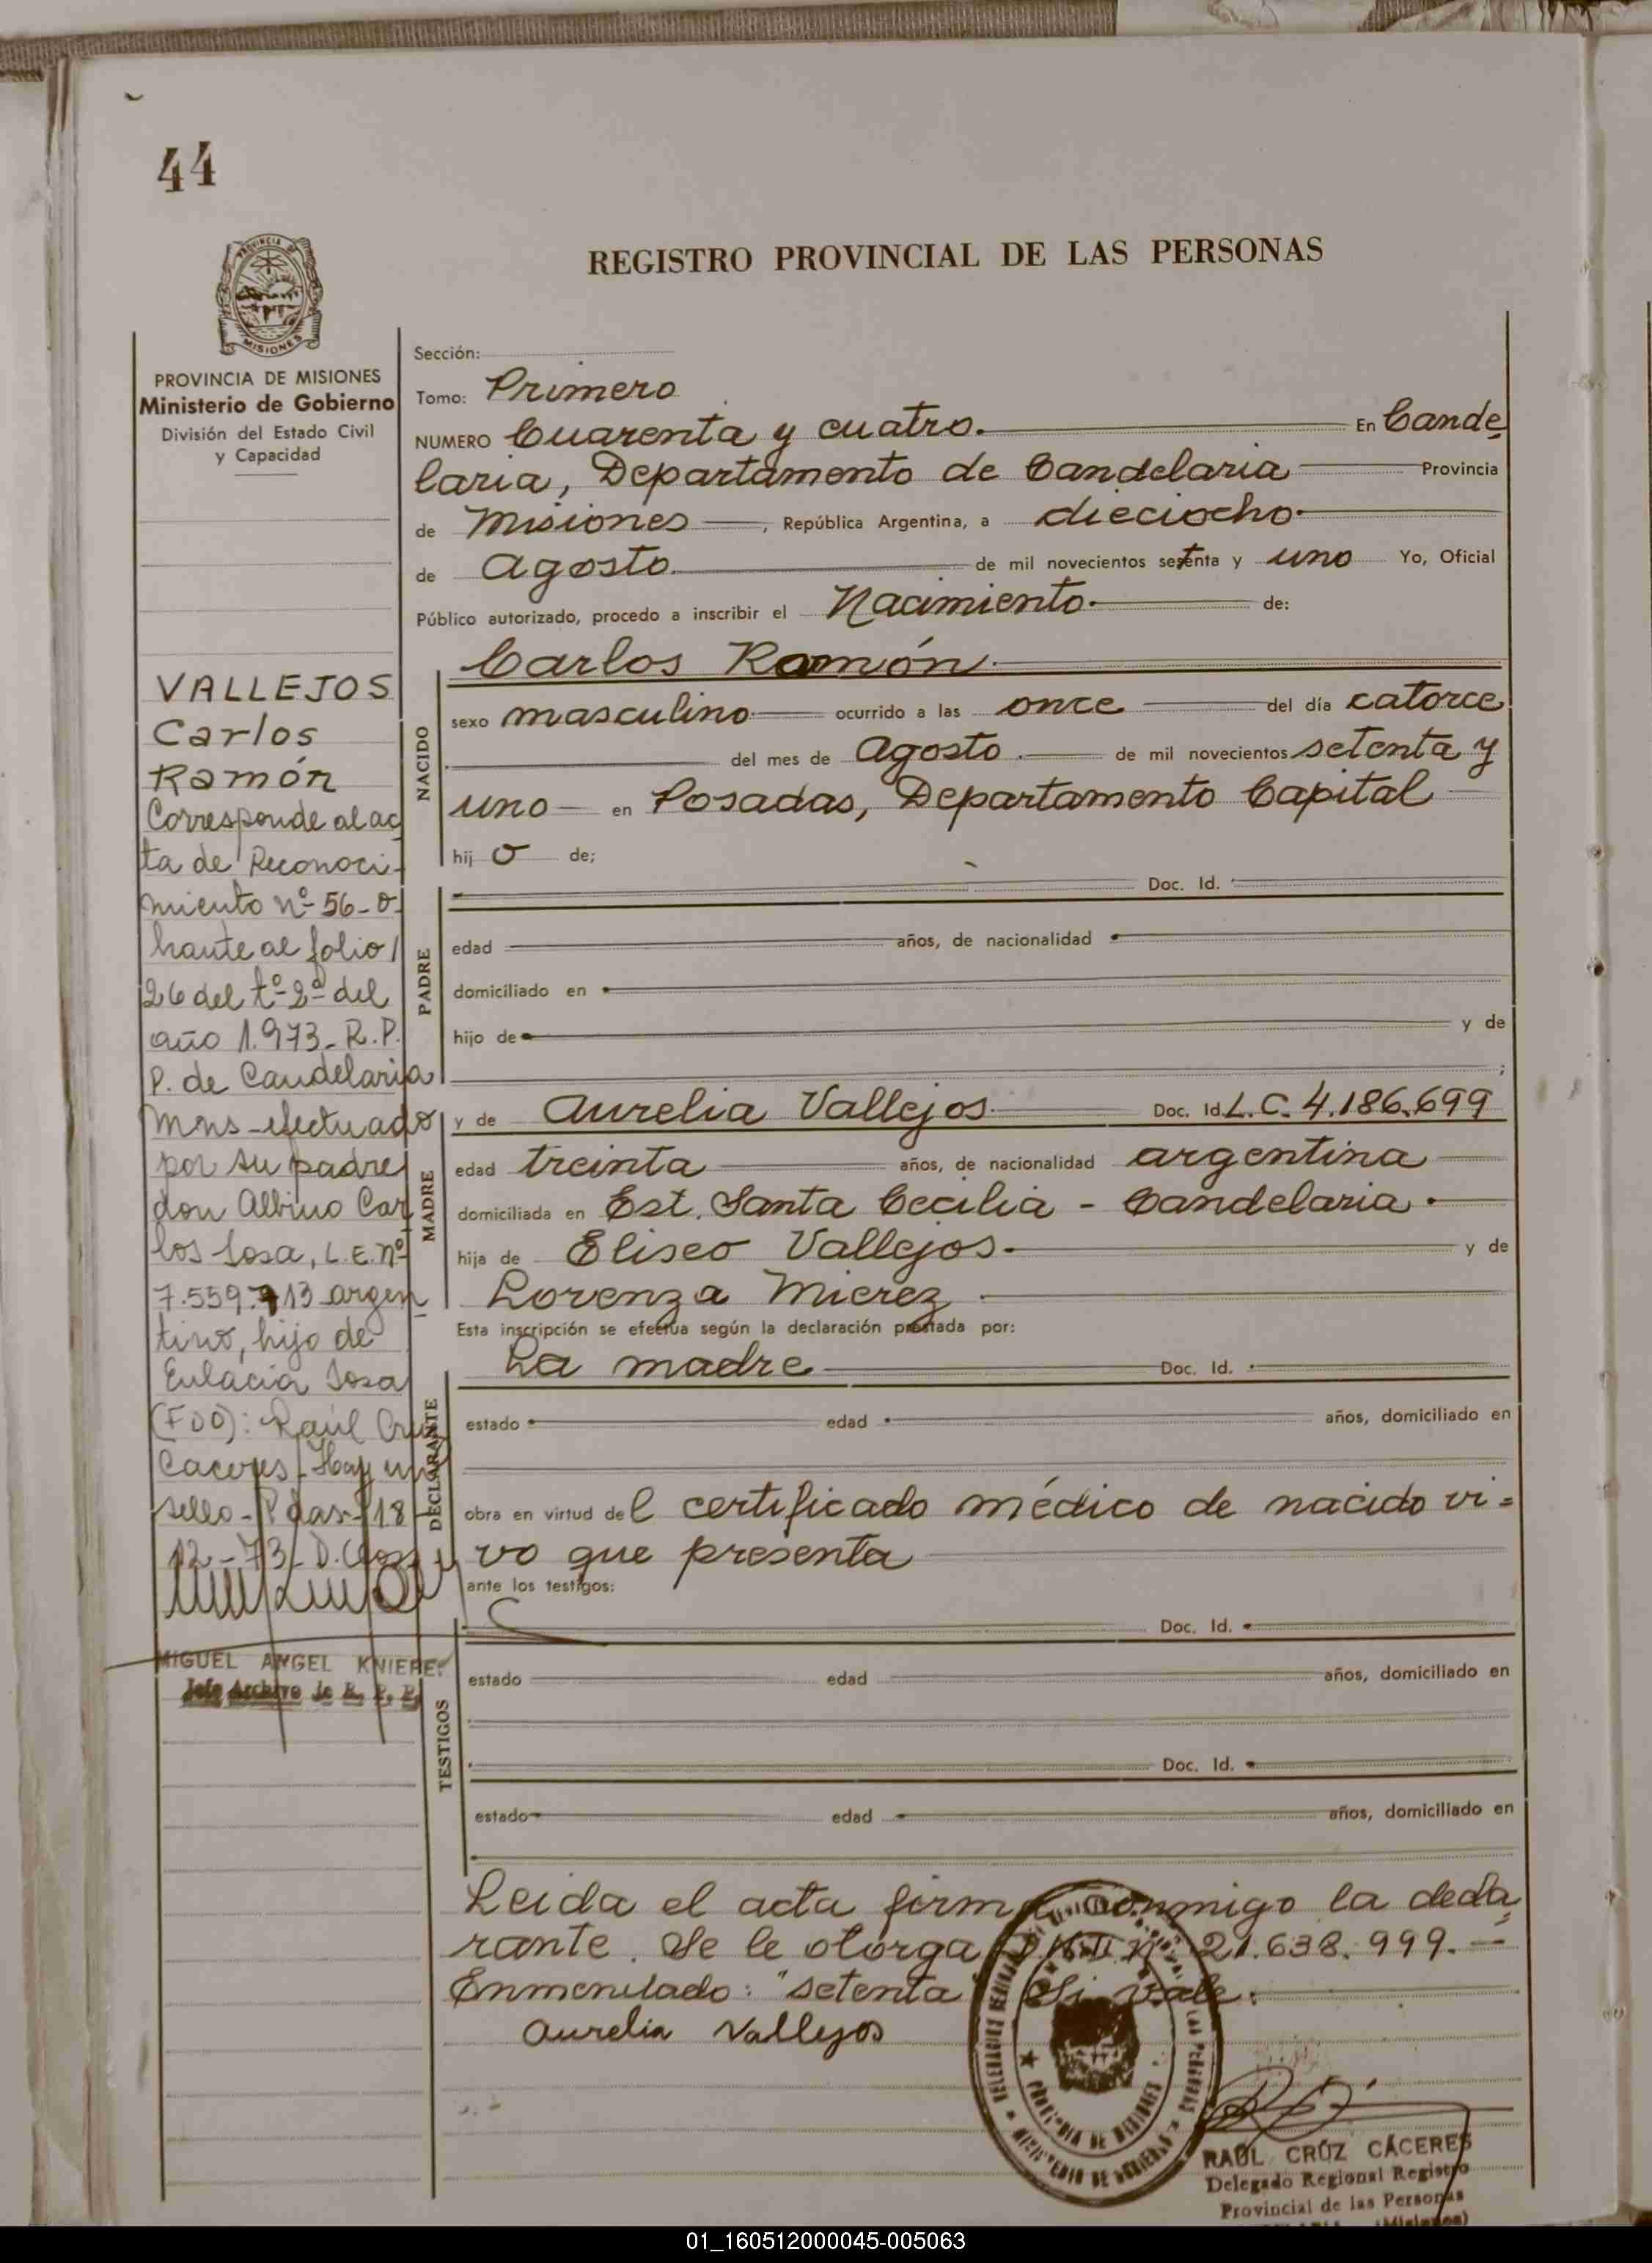 44
REGISTRO PROVINCIAL DE LAS PERSONAS
MISIONES
PROVINCIA DE MISIONES
Ministerio de Gobierno
División del Estado Civil
y Capacidad
VALLEJOS
Carlos
Ramón
Corresponde al ac
ta de Reconoci-
miento nº 56 - o-
brante al folio
26 del tº 2º del
año 1.973 - R.P.
P. de Candelaria
Mns - efectuado
por su padre
don Albino Car
los Sosa, L.E. nº
7.559.713 argen
tino, hijo de
Eulacia Sosa
(FDO): Raúl Cruz
Caceres - Hay un
sello - Pdas - 18
12 - 73 - D.
MIGUEL ANGEL KNIEPE
Jefe Archivo de R. P. P.
Sección:
Tomo: Primero
NUMERO Cuarenta y cuatro. En Cande
laria, Departamento de Candelaria Provincia
de Misiones, República Argentina, a dieciocho
de Agosto de mil novecientos setenta y uno Yo, Oficial
Público autorizado, procedo a inscribir el Nacimiento de:
NACIDO
Carlos Ramón
sexo masculino ocurrido a las once del día catorce
del mes de Agosto de mil novecientos setenta y
uno en Posadas, Departamento Capital
hij o de;
PADRE
Doc. Id.
edad años, de nacionalidad
domiciliado en
hijo de y de
;
MADRE
y de Aurelia Vallejos Doc. Id. L.C. 4.186.699
edad treinta años, de nacionalidad argentina
domiciliada en Est. Santa Cecilia - Candelaria
hija de Eliseo Vallejos y de
Lorenza Mierez
Esta inscripción se efectúa según la declaración prestada por:
DECLARANTE
La madre Doc. Id.
estado edad años, domiciliado en
obra en virtud del certificado médico de nacido vi=
vo que presenta
ante los testigos:
TESTIGOS
Doc. Id.
estado edad años, domiciliado en
Doc. Id.
estado edad años, domiciliado en
Leida el acta firma conmigo la decla
rante. Se le otorga D.N.I. Nº 21.638.999.-
Enmendado: "setenta" Si vale.
Aurelia Vallejos
PROVINCIA DE MISIONES
MINISTERIO DE GOBIERNO
RAÚL CRUZ CÁCERES
Delegado Regional Registro
Provincial de las Personas
(Misiones)
01_160512000045-005063